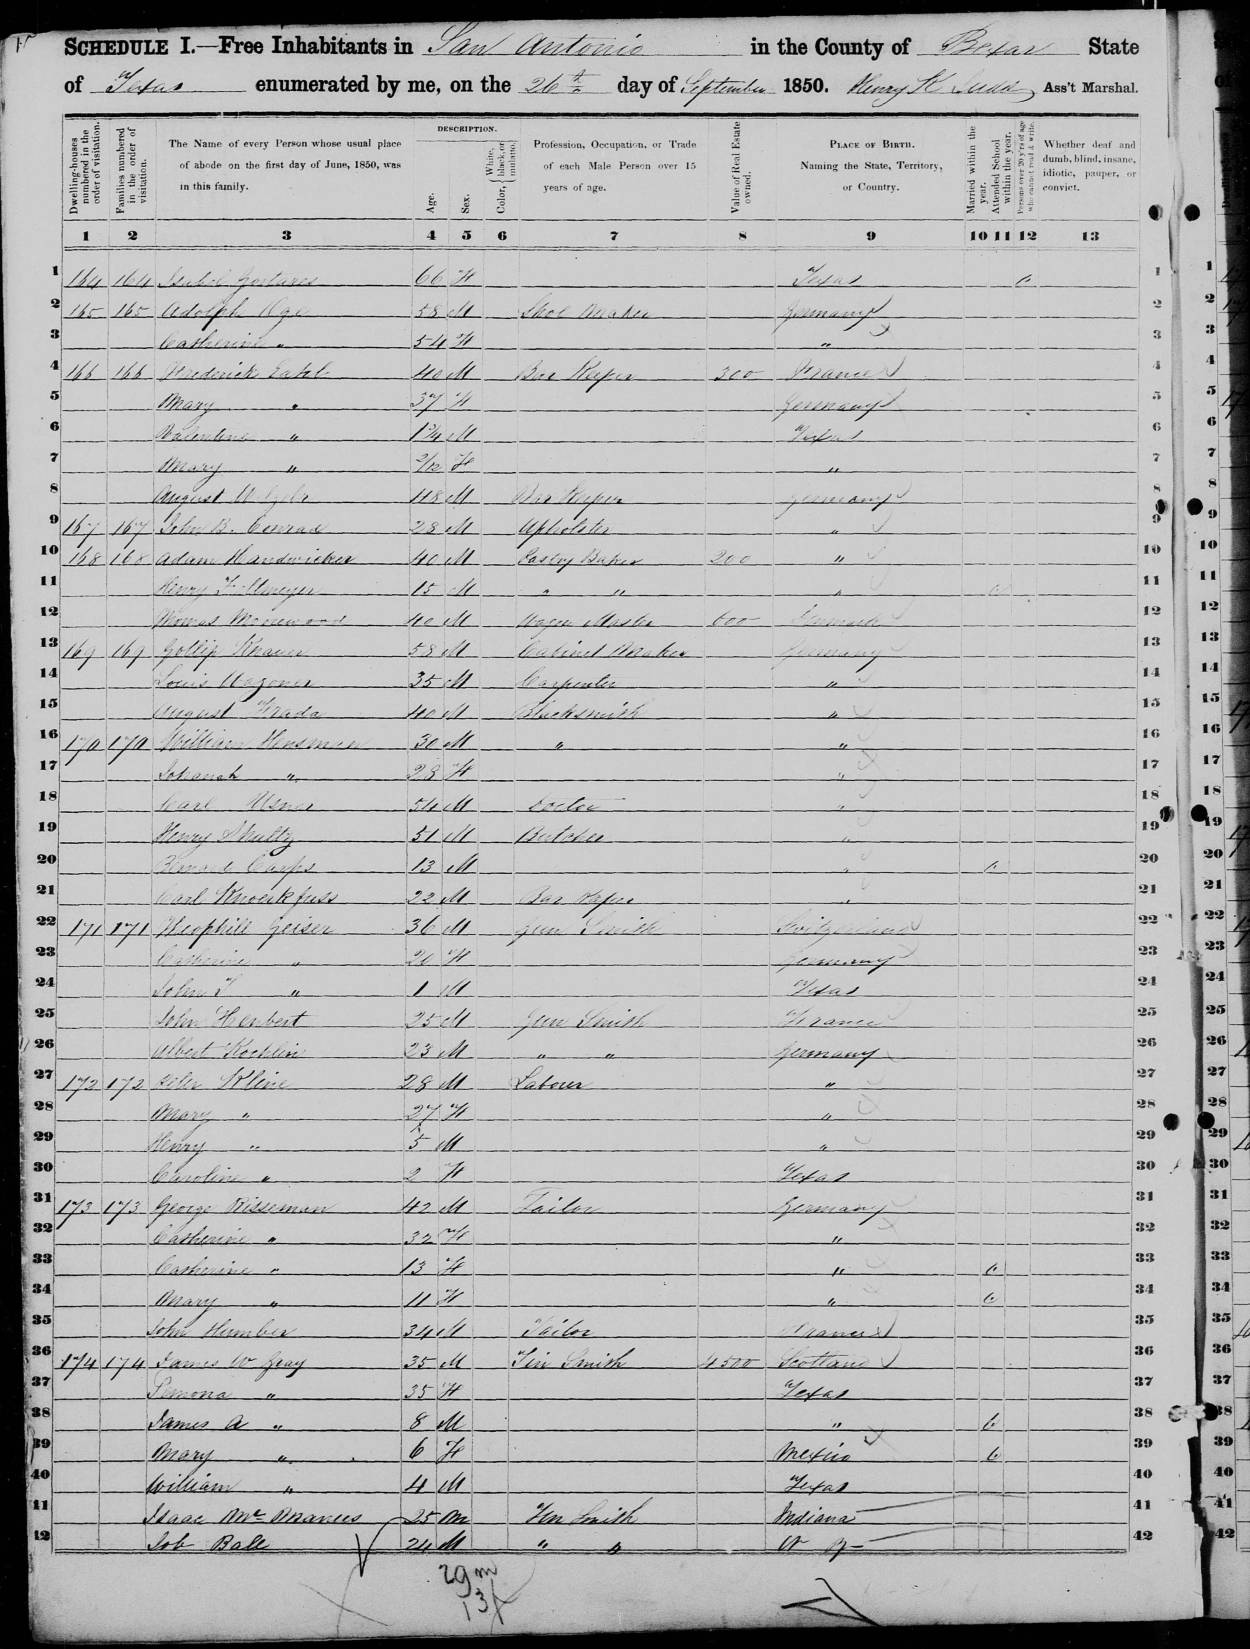 SCHEDULE I.—Free Inhabitants in San Antonio in the County of Bexar State
of Texas enumerated by me, on the 26th day of September 1850. Henry K Judd Ass't Marshal.
Dwelling-houses numbered in the order of visitation.
Families numbered in the order of visitation.
The Name of every Person whose usual place of abode on the first day of June, 1850, was in this family.
DESCRIPTION.
Age.
Sex.
Color, White, black, or mulatto.
Profession, Occupation, or Trade of each Male Person over 15 years of age.
Value of Real Estate owned.
PLACE OF BIRTH. Naming the State, Territory, or Country.
Married within the year.
Attended School within the year.
Persons over 20 y'rs of age who cannot read & write.
Whether deaf and dumb, blind, insane, idiotic, pauper, or convict.
1 2 3 4 5 6 7 8 9 10 11 12 13
1 164 164 Isabel 66 F Texas 1
2 165 165 Adolph Oge 58 M Shoe Maker Germany 2
3 Catherine " 54 F " 3
4 166 166 Frederick 40 M Bar Keeper 300 France 4
5 Mary " 37 F Germany 5
6 Valentine " 1 3/4 M Texas 6
7 Mary " 2/12 F " 7
8 August 48 M Bar Keeper Germany 8
9 167 167 John B. Conrad 28 M Upholster " 9
10 168 168 Adam Handwicker 40 M Pastry Baker 200 " 10
11 Henry 15 M " " " 11
12 Thomas 40 M Wagon Master 600 Denmark 12
13 169 169 Gottlip Knauer 58 M Cabinet Maker Germany 13
14 Louis Wagoner 35 M Carpenter " 14
15 August 40 M Blacksmith " 15
16 170 170 William Hensman 30 M " " 16
17 Johanah " 28 F " 17
18 Carl Usner 54 M Doctor " 18
19 Henry Shultz 51 M Butcher " 19
20 Bernard Carps 13 M " 20
21 Carl 22 M Bar Keeper " 21
22 171 171 Theophill Geiser 36 M Gun Smith Switzerland 22
23 Catherine " 20 F Germany 23
24 John T " 1 M Texas 24
25 John Herbert 25 M Gun Smith France 25
26 Albert Kochlin 23 M " " Germany 26
27 172 172 Peter Kline 28 M Labour " 27
28 Mary " 27 F " 28
29 Henry " 5 M " 29
30 Caroline " 2 F Texas 30
31 173 173 George Risseman 42 M Tailor Germany 31
32 Catherine " 32 F " 32
33 Catherine " 13 F " 33
34 Mary " 11 F " 34
35 John Humber 34 M Tailor France 35
36 174 174 James W Gray 35 M Tin Smith 4500 Scotland 36
37 Simona " 35 F Texas 37
38 James A " 8 M " 38
39 Mary " 6 F Mexico 39
40 William " 4 M Texas 40
41 Isaac Mc Manus 25 M Tin Smith Indiana 41
42 Job Ball 24 M " " N Y 42
29 m
13 f